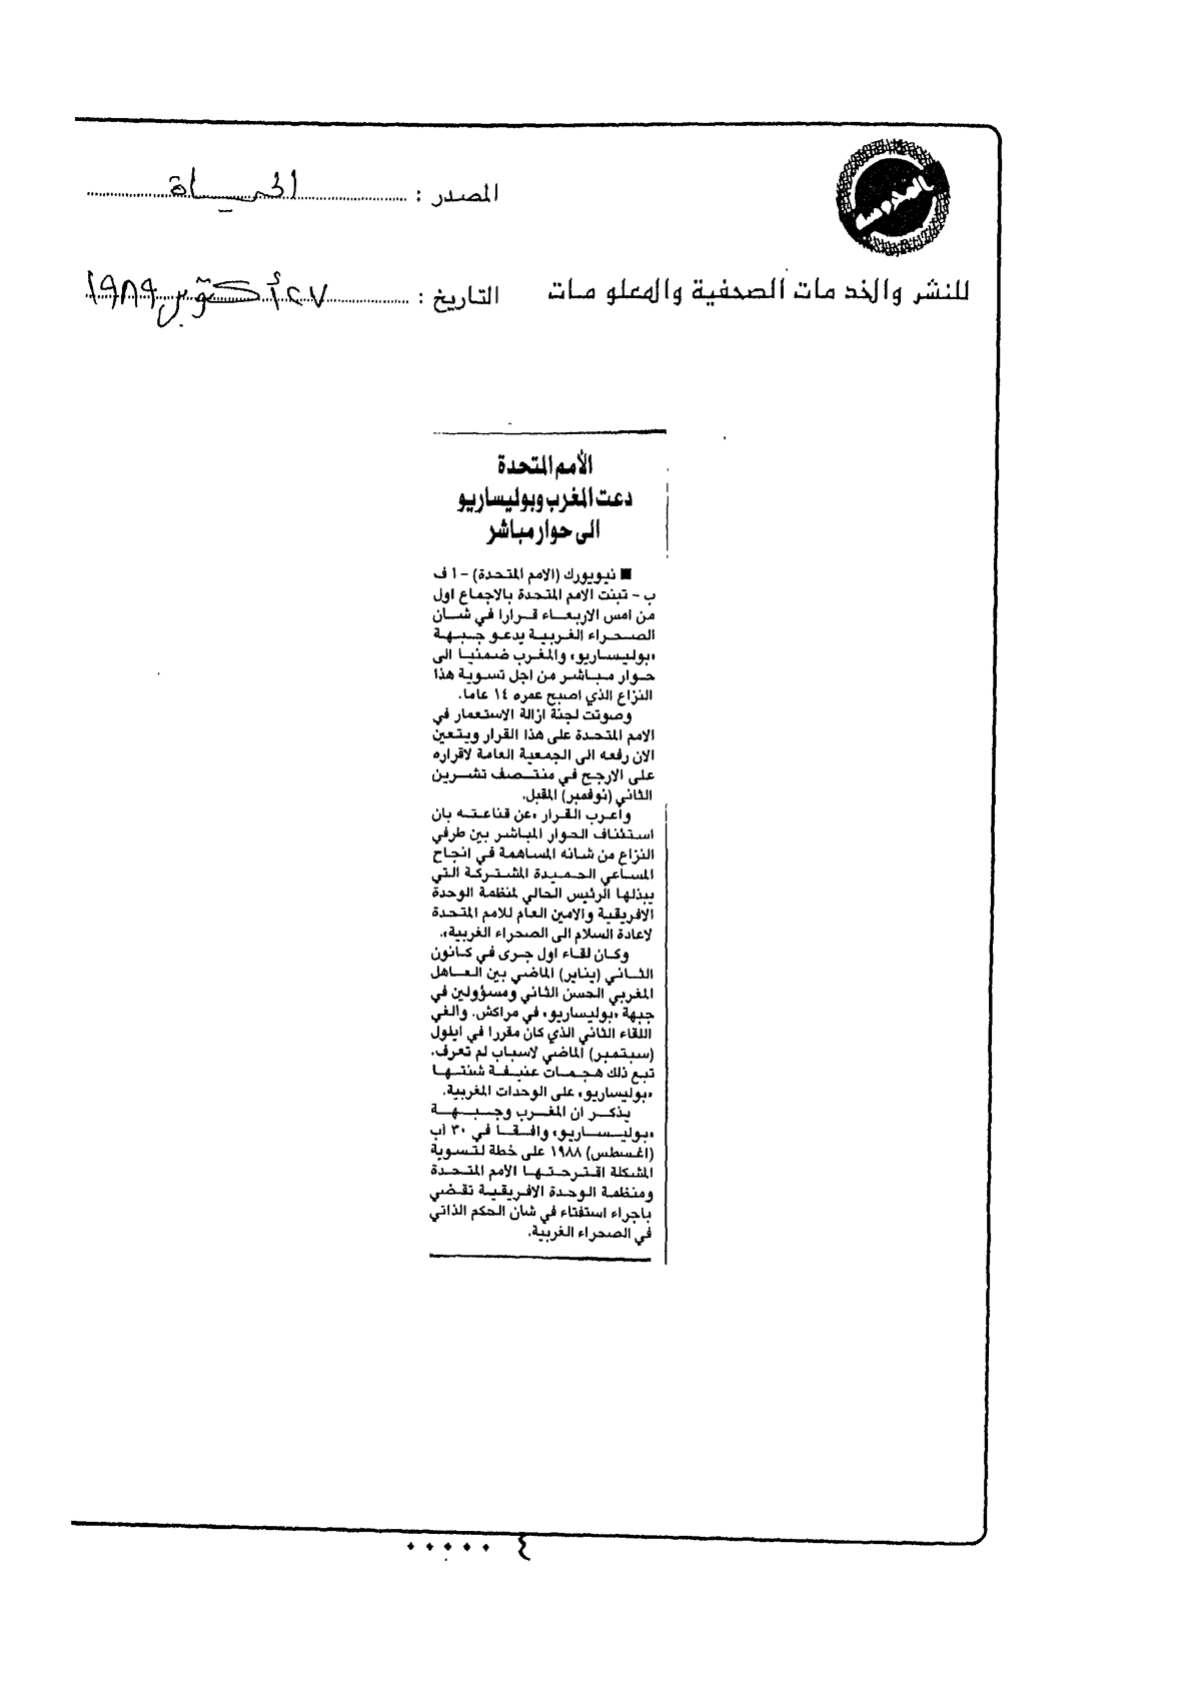 المصدر : الحياة
للنشر والخدمات الصحفية والمعلومات
التاريخ : ٢٧ أكتوبر ١٩٨٩
الأمم المتحدة
دعت المغرب وبوليساريو
الى حوار مباشر
■ نيويورك (الامم المتحدة) - ا ف
ب - تبنت الامم المتحدة بالاجماع اول
من امس الاربعاء قرارا في شان
الصحراء الغربية يدعو جبهة
«بوليساريو» والمغرب ضمنيا الى
حوار مباشر من اجل تسوية هذا
النزاع الذي اصبح عمره ١٤ عاما.
وصوتت لجنة ازالة الاستعمار في
الامم المتحدة على هذا القرار ويتعين
الان رفعه الى الجمعية العامة لاقراره
على الارجح في منتصف تشرين
الثاني (نوفمبر) المقبل.
وأعرب القرار «عن قناعته بان
استئناف الحوار المباشر بين طرفي
النزاع من شانه المساهمة في انجاح
المساعي الحميدة المشتركة التي
يبذلها الرئيس الحالي لمنظمة الوحدة
الافريقية والامين العام للامم المتحدة
لاعادة السلام الى الصحراء الغربية».
وكان لقاء اول جرى في كانون
الثاني (يناير) الماضي بين العاهل
المغربي الحسن الثاني ومسؤولين في
جبهة «بوليساريو» في مراكش. والغي
اللقاء الثاني الذي كان مقررا في ايلول
(سبتمبر) الماضي لاسباب لم تعرف.
تبع ذلك هجمات عنيفة شنتها
«بوليساريو» على الوحدات المغربية.
يذكر ان المغرب وجبهة
«بوليساريو» وافقا في ٣٠ آب
(اغسطس) ١٩٨٨ على خطة لتسوية
المشكلة اقترحتها الامم المتحدة
ومنظمة الوحدة الافريقية تقضي
باجراء استفتاء في شان الحكم الذاتي
في الصحراء الغربية.
٤ .....